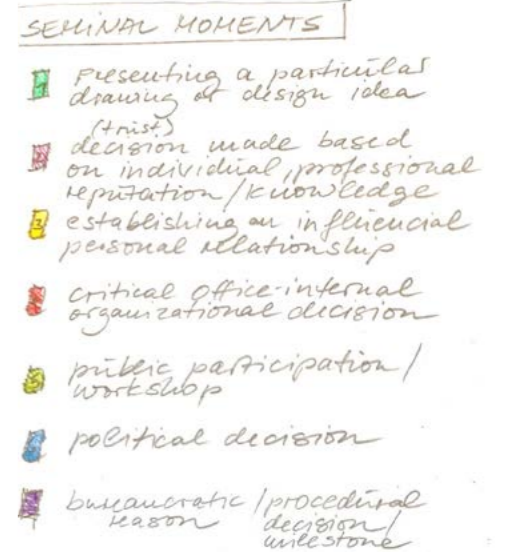 SEMINAL MOMENTS
1 Presenting a particular
drawing or design idea
(trust)
2 decision made based
on individual, professional
reputation/knowledge
3 establishing an influencial
personal relationship
4 critical office-internal
organizational decision
5 public participation/
workshop
6 political decision
7 bureaucratic/procedural
reason decision/
milestone